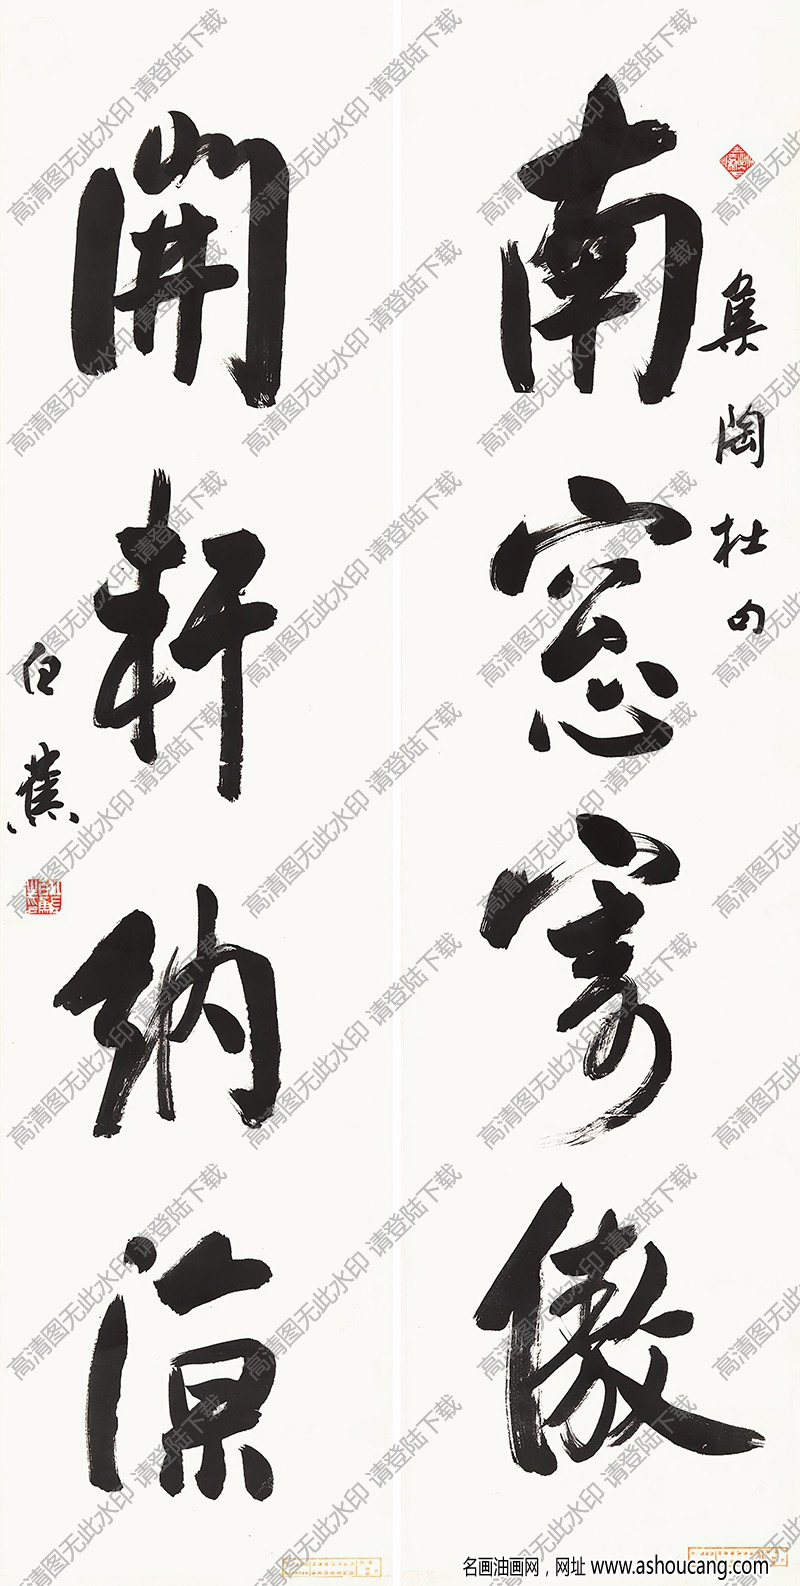 南窓寄傲
集陶杜句
開軒納涼
白蕉
高清图无此水印 请登陆下载
名画油画网，网址 www.ashoucang.com